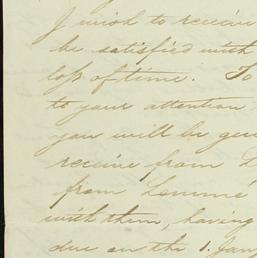 I wish to receive
be satisfied with
loss of time. To
to your attention
you will be
receive from
from
with them, having
due on the 1. Jan